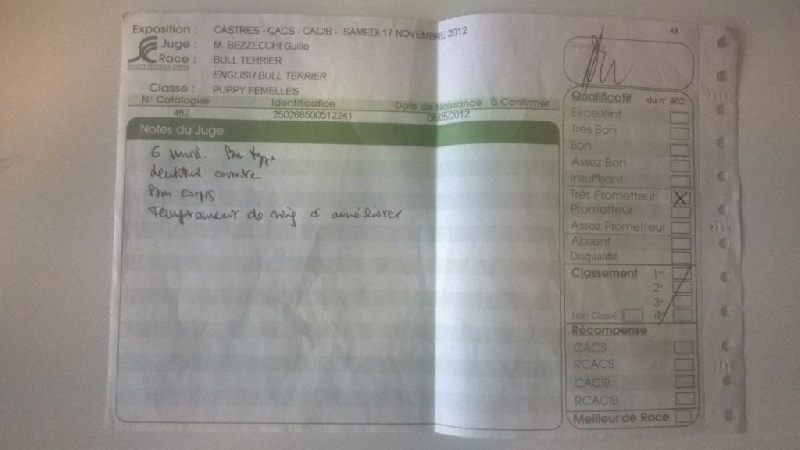 Exposition : CASTRES - CACS - CACIB - SAMEDI 17 NOVEMBRE 2012
Juge : M. BEZZECCHI Guilio
Race : BULL TERRIER
ENGLISH BULL TERRIER
Classe : PUPPY FEMELLES
N° Catalogue Identification Date de Naissance à Confirmer
462 250268500512241 06/05/2012
Notes du Juge
6 mois. Bon type
Bon corps
Tempérament de ring à améliorer
48
Qualificatif du n° 462
Excellent
Très Bon
Bon
Assez Bon
Insuffisant
Très Prometteur X
Prometteur
Assez Prometteur
Absent
Disqualifié
Classement 1er
2e
3e
Non Classé 4e
Récompense
CACS
RCACS
CACIB
RCACIB
Meilleur de Race